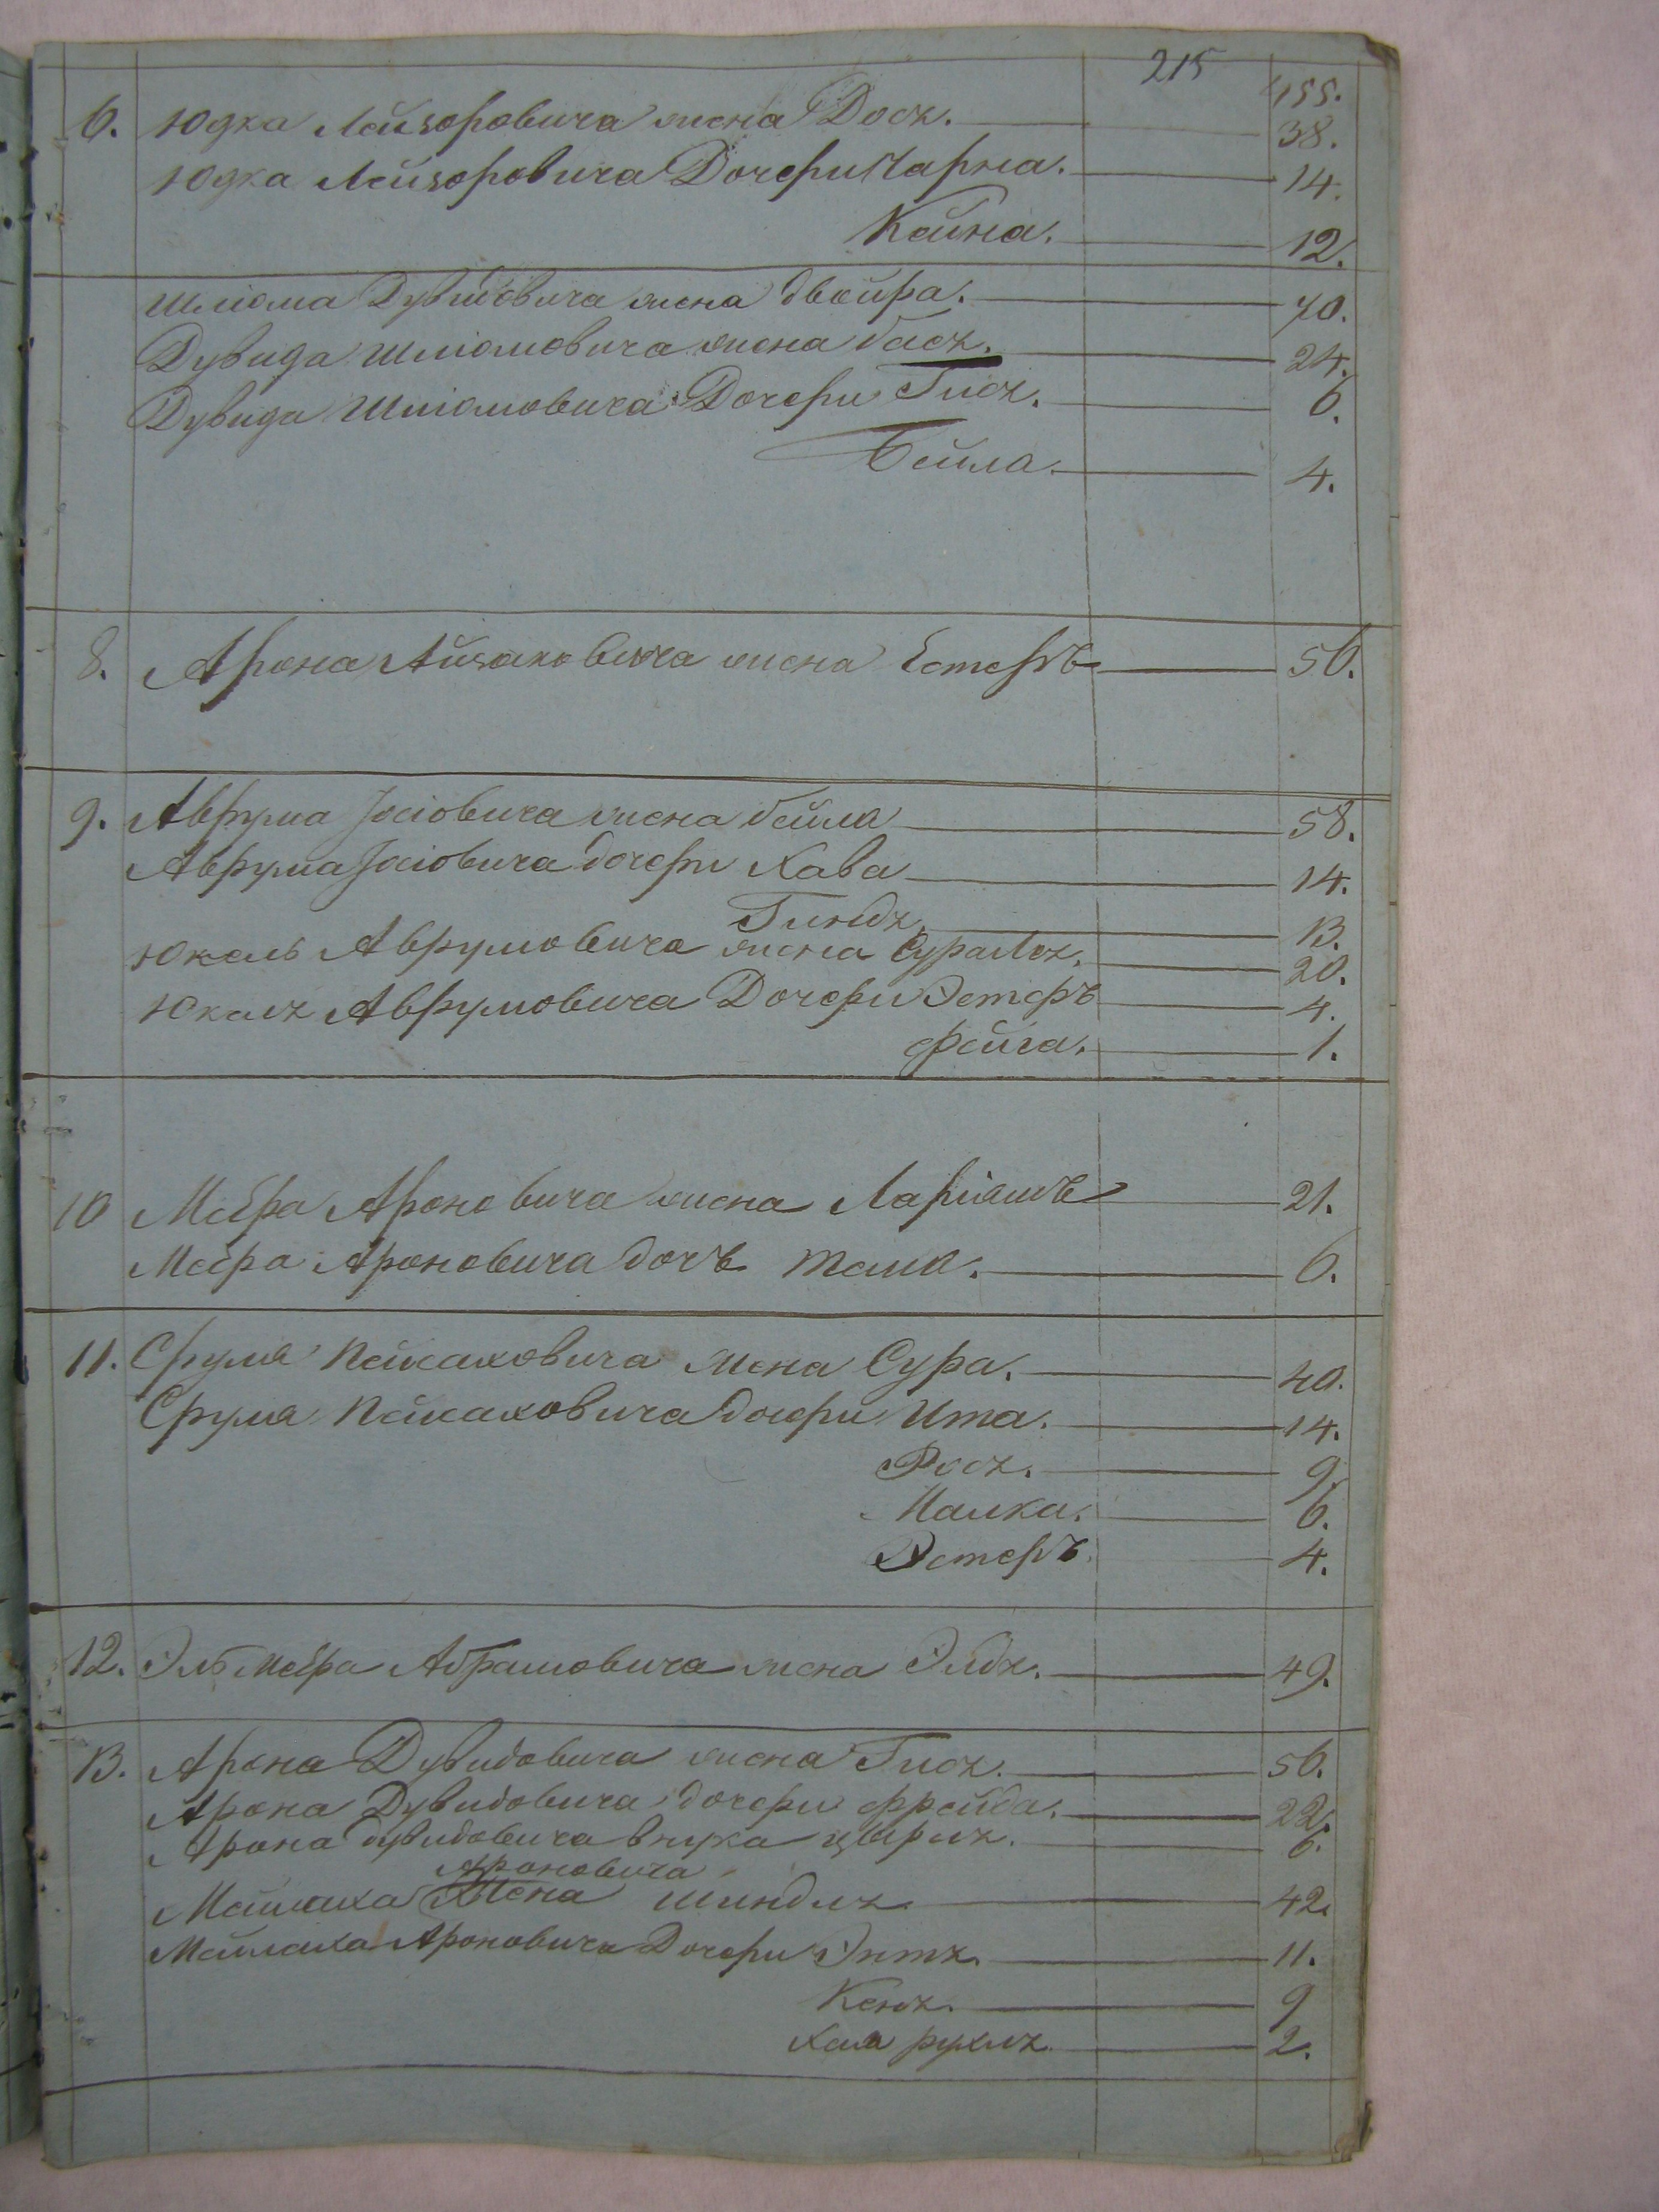 215
455.
6. Юдка Лейзоровича жена Дося. 38.
Юдка Лейзоровича Дочери Чарна. 14.
Кайна. 12.
Шліома Дувидовича жена двойра. 70.
Дувида Шліомовича жена бася. 24.
Дувида Шліомовича Дочери Гися. 6.
Бейла. 4.
8. Арона Айзаковича жена Естеръ 56.
9. Аврума Јосіовича жена бейла 58.
Аврума Јосіовича дочери Хава 14.
Гиндя. 13.
Юкель Аврумовича жена Сура Лея. 20.
Юкеля Аврумовича Дочери Эстеръ 4.
фейга. 1.
10 Меера Ароновича жена Маріямъ 21.
Меера Ароновича дочь 6.
11. Сруля Пейсаховича жена Сура. 40.
Сруля Пейсаховича дочери Ита. 14.
Рося. 9.
Малка. 6.
Эстеръ. 4.
12. Эль Меера Абрамовича жена Элдя. 49.
13. Арона Дувидовича жена Гися. 56.
Арона Дувидовича дочери фрейда. 22.
Арона дувидовича внука 6.
Ароновича
Мейлаха жена шиндля 42.
Мейлаха Ароновича Дочери Энтя. 11.
Кеня. 9
Хая рухля. 2.